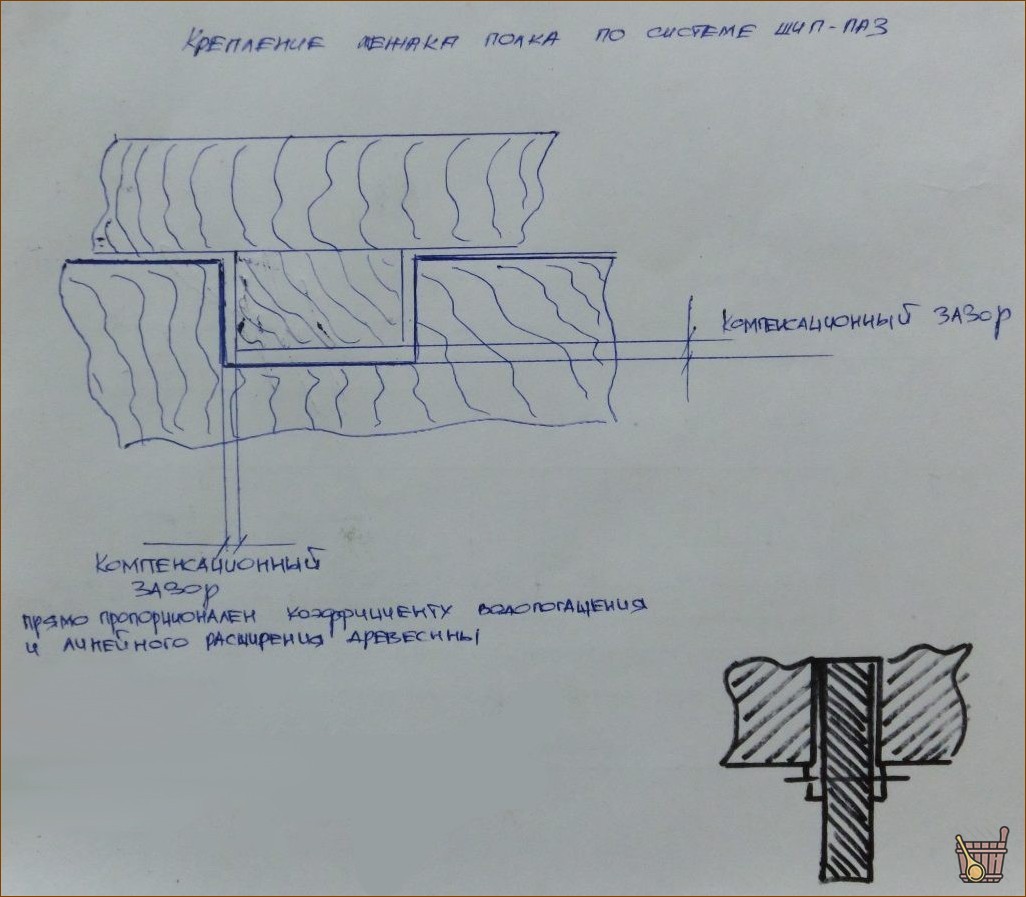 Крепление лежака полка по системе шип-паз
Компенсационный зазор
Компенсационный
зазор
прямо пропорционален коэффициенту водопогащения
и линейного расширения древесины